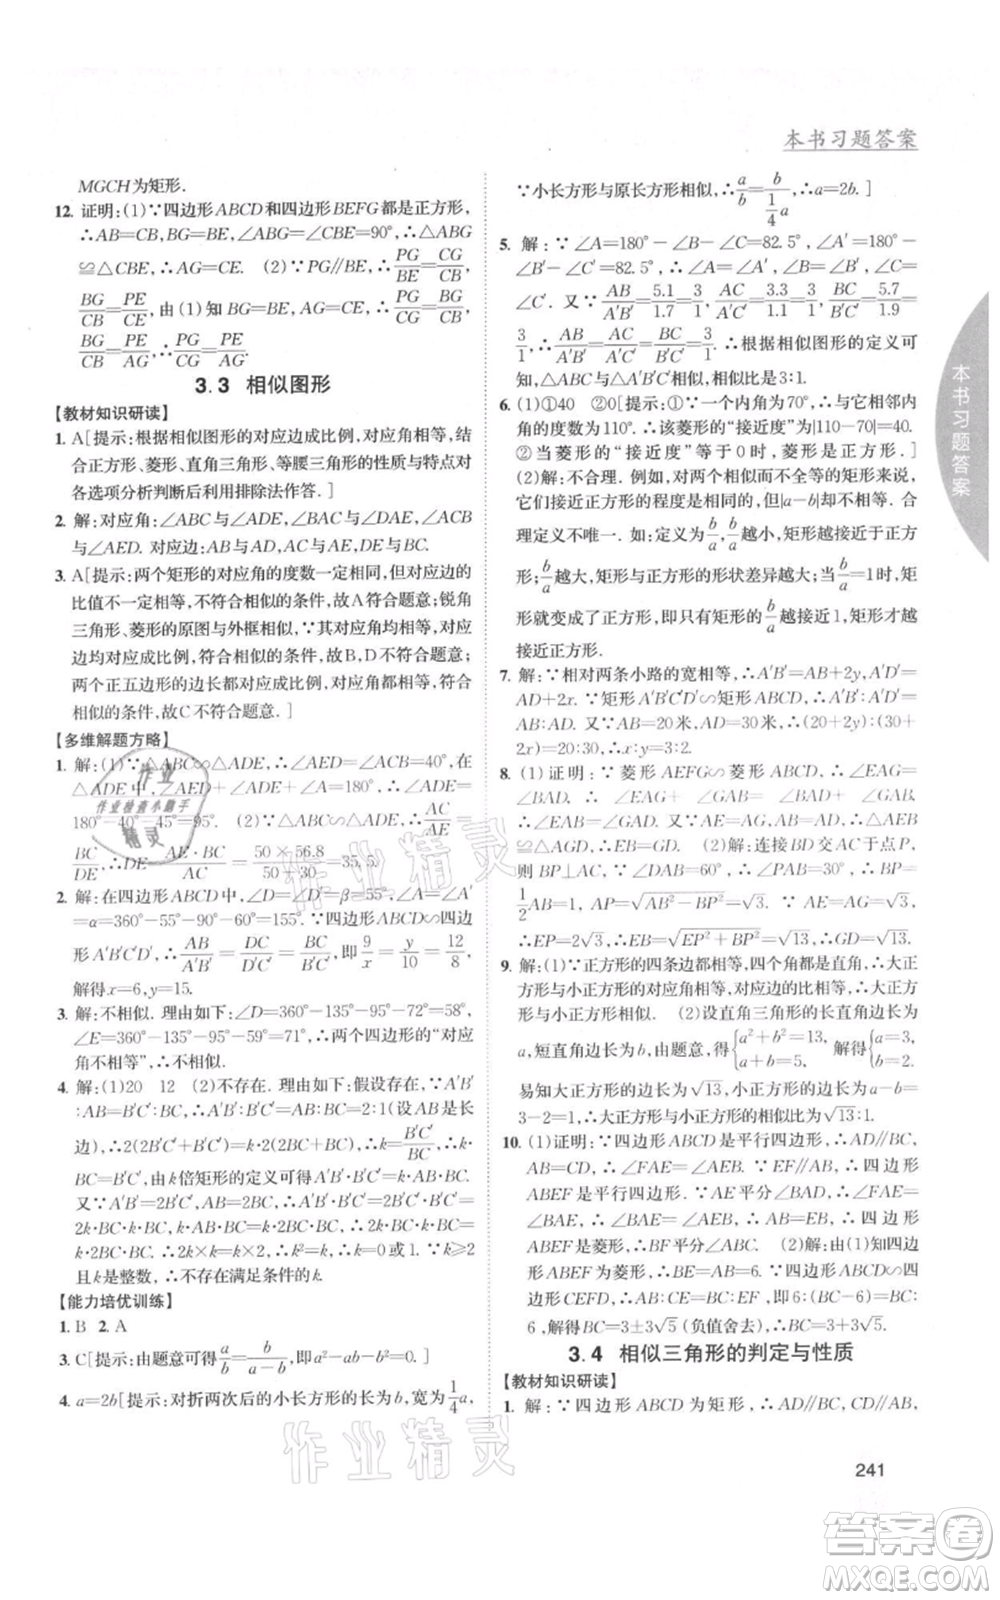 本书习题答案
MGCH为矩形.
12. 证明:(1)∵四边形ABCD和四边形BEFG都是正方形,
∴AB=CB,BG=BE,∠ABG=∠CBE=90°,∴△ABG
≌△CBE,∴AG=CE. (2)∵PG∥BE,∴PG/BE=CG/CB,
BG/CB=PE/CE,由(1)知BG=BE,AG=CE,∴PG/BG=CG/CB,
BG/CB=PE/AG,∴PG/BG=PE/AG.
3.3 相似图形
【教材知识研读】
1. A[提示:根据相似图形的对应边成比例,对应角相等,结
合正方形、菱形、直角三角形、等腰三角形的性质与特点对
各选项分析判断后利用排除法作答.]
2. 解:对应角:∠BAC与∠DAE,∠ABC与∠ADE,∠ACB
与∠AED. 对应边:AB与AD,AC与AE,BC与DE.
3. A[提示:两个矩形的对应角的度数一定相同,但对应边的
比值不一定相等,不符合相似的条件,故A符合题意;锐角
三角形、菱形的原图与外框相似,∵对应角均相等,对应
边均对应成比例,符合相似的条件,故B,D不符合题意;
两个正五边形的边长都对应成比例,对应角也相等,符合
相似的条件,故C不符合题意.]
【多维解题方略】
1. 解:(1)∵△ABC∽△ADE,∴∠AED=∠ACB=40°,在
△ADE中,∠AED+∠ADE+∠A=180°,∴∠ADE=
180°-40°-45°=95°. (2)∵△ABC∽△ADE,∴AC/AE=
BC/DE,∴DE=AE·BC/AC=50×56.8/50+30=35.5.
2. 解:在四边形ABCD中,∠D=∠D′=β=55°,∠A=∠A′
=α=360°-55°-90°-60°=155°.∵四边形ABCD∽四边
形A′B′C′D′,∴AB/A′B′=DC/D′C′=BC/B′C′,即9/x=y/10=12/8,
解得x=6,y=15.
3. 解:不相似. 理由如下:∵∠D=360°-135°-95°-72°=58°,
∠E=360°-135°-95°-59°=71°,∴两个四边形的“对应
角不相等”,∴不相似.
4. 解:(1)20 12 (2)不存在. 理由如下:∵A′B′:B′C′
=AB:BC=2:BC,∴A′B′:AB=B′C′:BC=2:1(设成长
边),∴2(2B′C′+B′C′)=k·2(BC+2BC),∴k=B′C′/BC,
∴B′C′=k·BC,由k倍矩形的定义可得A′B′·B′C′=k·2BC.
又∵A′B′=2B′C′,∴2B′C′·B′C′=k·2BC·BC,∴
2k·BC·k·BC=k·2BC·BC,∴k²=k,∴k=0或1.又∵k≥2
且k是整数,∴不存在满足条件的k.
【能力培优训练】
1. B 2. A
3. C[提示:由题意可得a/b=b/a-b,∴a²-ab=b².]
4. a=2b[提示:对折两次后的小长方形的长为b,宽为1/4a,
∵小长方形与原长方形相似,∴a/b=b/(1/4a),∴a=2b.]
5. 解:∵∠A=180°-∠B-∠C=82.5°,∠A′=180°-
∠B′-∠C′=82.5°,∴∠A=∠A′,∠B=∠B′,∠C=
∠C′. 又∵AB/A′B′=5.1/1.7=3/1,AC/A′C′=3.3/1.1=3/1,BC/B′C′=5.7/1.9=
3/1,∴AB/A′B′=AC/A′C′=BC/B′C′,∴根据相似图形的定义可
知,△ABC∽△A′B′C′,且相似比是3:1.
6. (1)①40 ②0[提示:①∵菱形的一个内角为70°,∴相邻
内角的度数为110°,∴该菱形的“接近度”为|110-70|=40.
②当菱形的“接近度”等于0时,菱形是正方形.]
(2)解:不合理. 例如,对两个相似而不全等的矩形来说,
它们接近正方形的程度是相同的,但|a-b|却不相等. 合
理定义不唯一. 如:定义为b/a,b/a越小,矩形越接近于正方
形;b/a越大,矩形与正方形的形状差异越大;当b/a=1时,矩形
就变成了正方形. 只有矩形的b/a越接近1,矩形才越
接近正方形.
7. 解:∵相对两条小路的宽相等,∴A′B′=AB+2y,A′D′=
AD+2x. ∵矩形A′B′C′D′∽矩形ABCD,∴A′B′:A′D′=
AB:AD. 又∵AB=20米,AD=30米,∴(20+2y):(30+
2x)=20:30,∴x:y=3:2.
8. (1)证明:∵菱形AEFG∽菱形ABCD,∴∠EAG=
∠BAD,∴∠EAG+∠GAB=∠BAD+∠GAB,
∴∠EAB=∠GAD. 又∵AE=AG,AB=AD,∴△AEB
≌△AGD,∴EB=GD. (2)解:连接BD交AC于点P,
则BP⊥AC,∵∠DAB=60°,∴∠PAB=30°,∴BP=
1/2AB=1,AP=√AB²-BP²=√3,AE=AG=√3,
∴EP=2√3,∴EB=√EP²+BP²=√13,∴GD=√13.
9. (1)∵正方形的四条边都相等,四个角都是直角,∴大正
方形与小正方形相似. (2)设直角三角形的长直角边长为
a,短直角边长为b,由题意,得{a²+b²=13, a+b=5, 解得{a=3, b=2.
易知大正方形的边长为√13,小正方形的边长为
3-2=1,∴大正方形与小正方形的相似比为√13:1.
10. (1)证明:∵四边形ABCD是平行四边形,∴AD∥BC,
∴∠FAE=∠AEB. ∵EF∥AB,∴四边形
ABEF是平行四边形. ∵AE平分∠BAF,∴∠FAE=
∠BAE,∴∠BAE=∠AEB,∴AB=EB,∴四边形
ABEF是菱形. (2)解:∵由(1)知四边形
ABEF为菱形,∴BE=AB=6.∵四边形ABCD∽四边
形CEFD,∴AB:CE=BC:EF,即6:(BC-6)=BC:
6,解得BC=3±3√5(负值舍去),∴BC=3+3√5.
3.4 相似三角形的判定与性质
【教材知识研读】
1. 解:∵四边形ABCD为矩形,∴AD∥BC,CD∥AB,
本书习题答案
241
作业精灵
作业检查小助手
作业精灵
作业精灵
答案圈
MXQE.COM